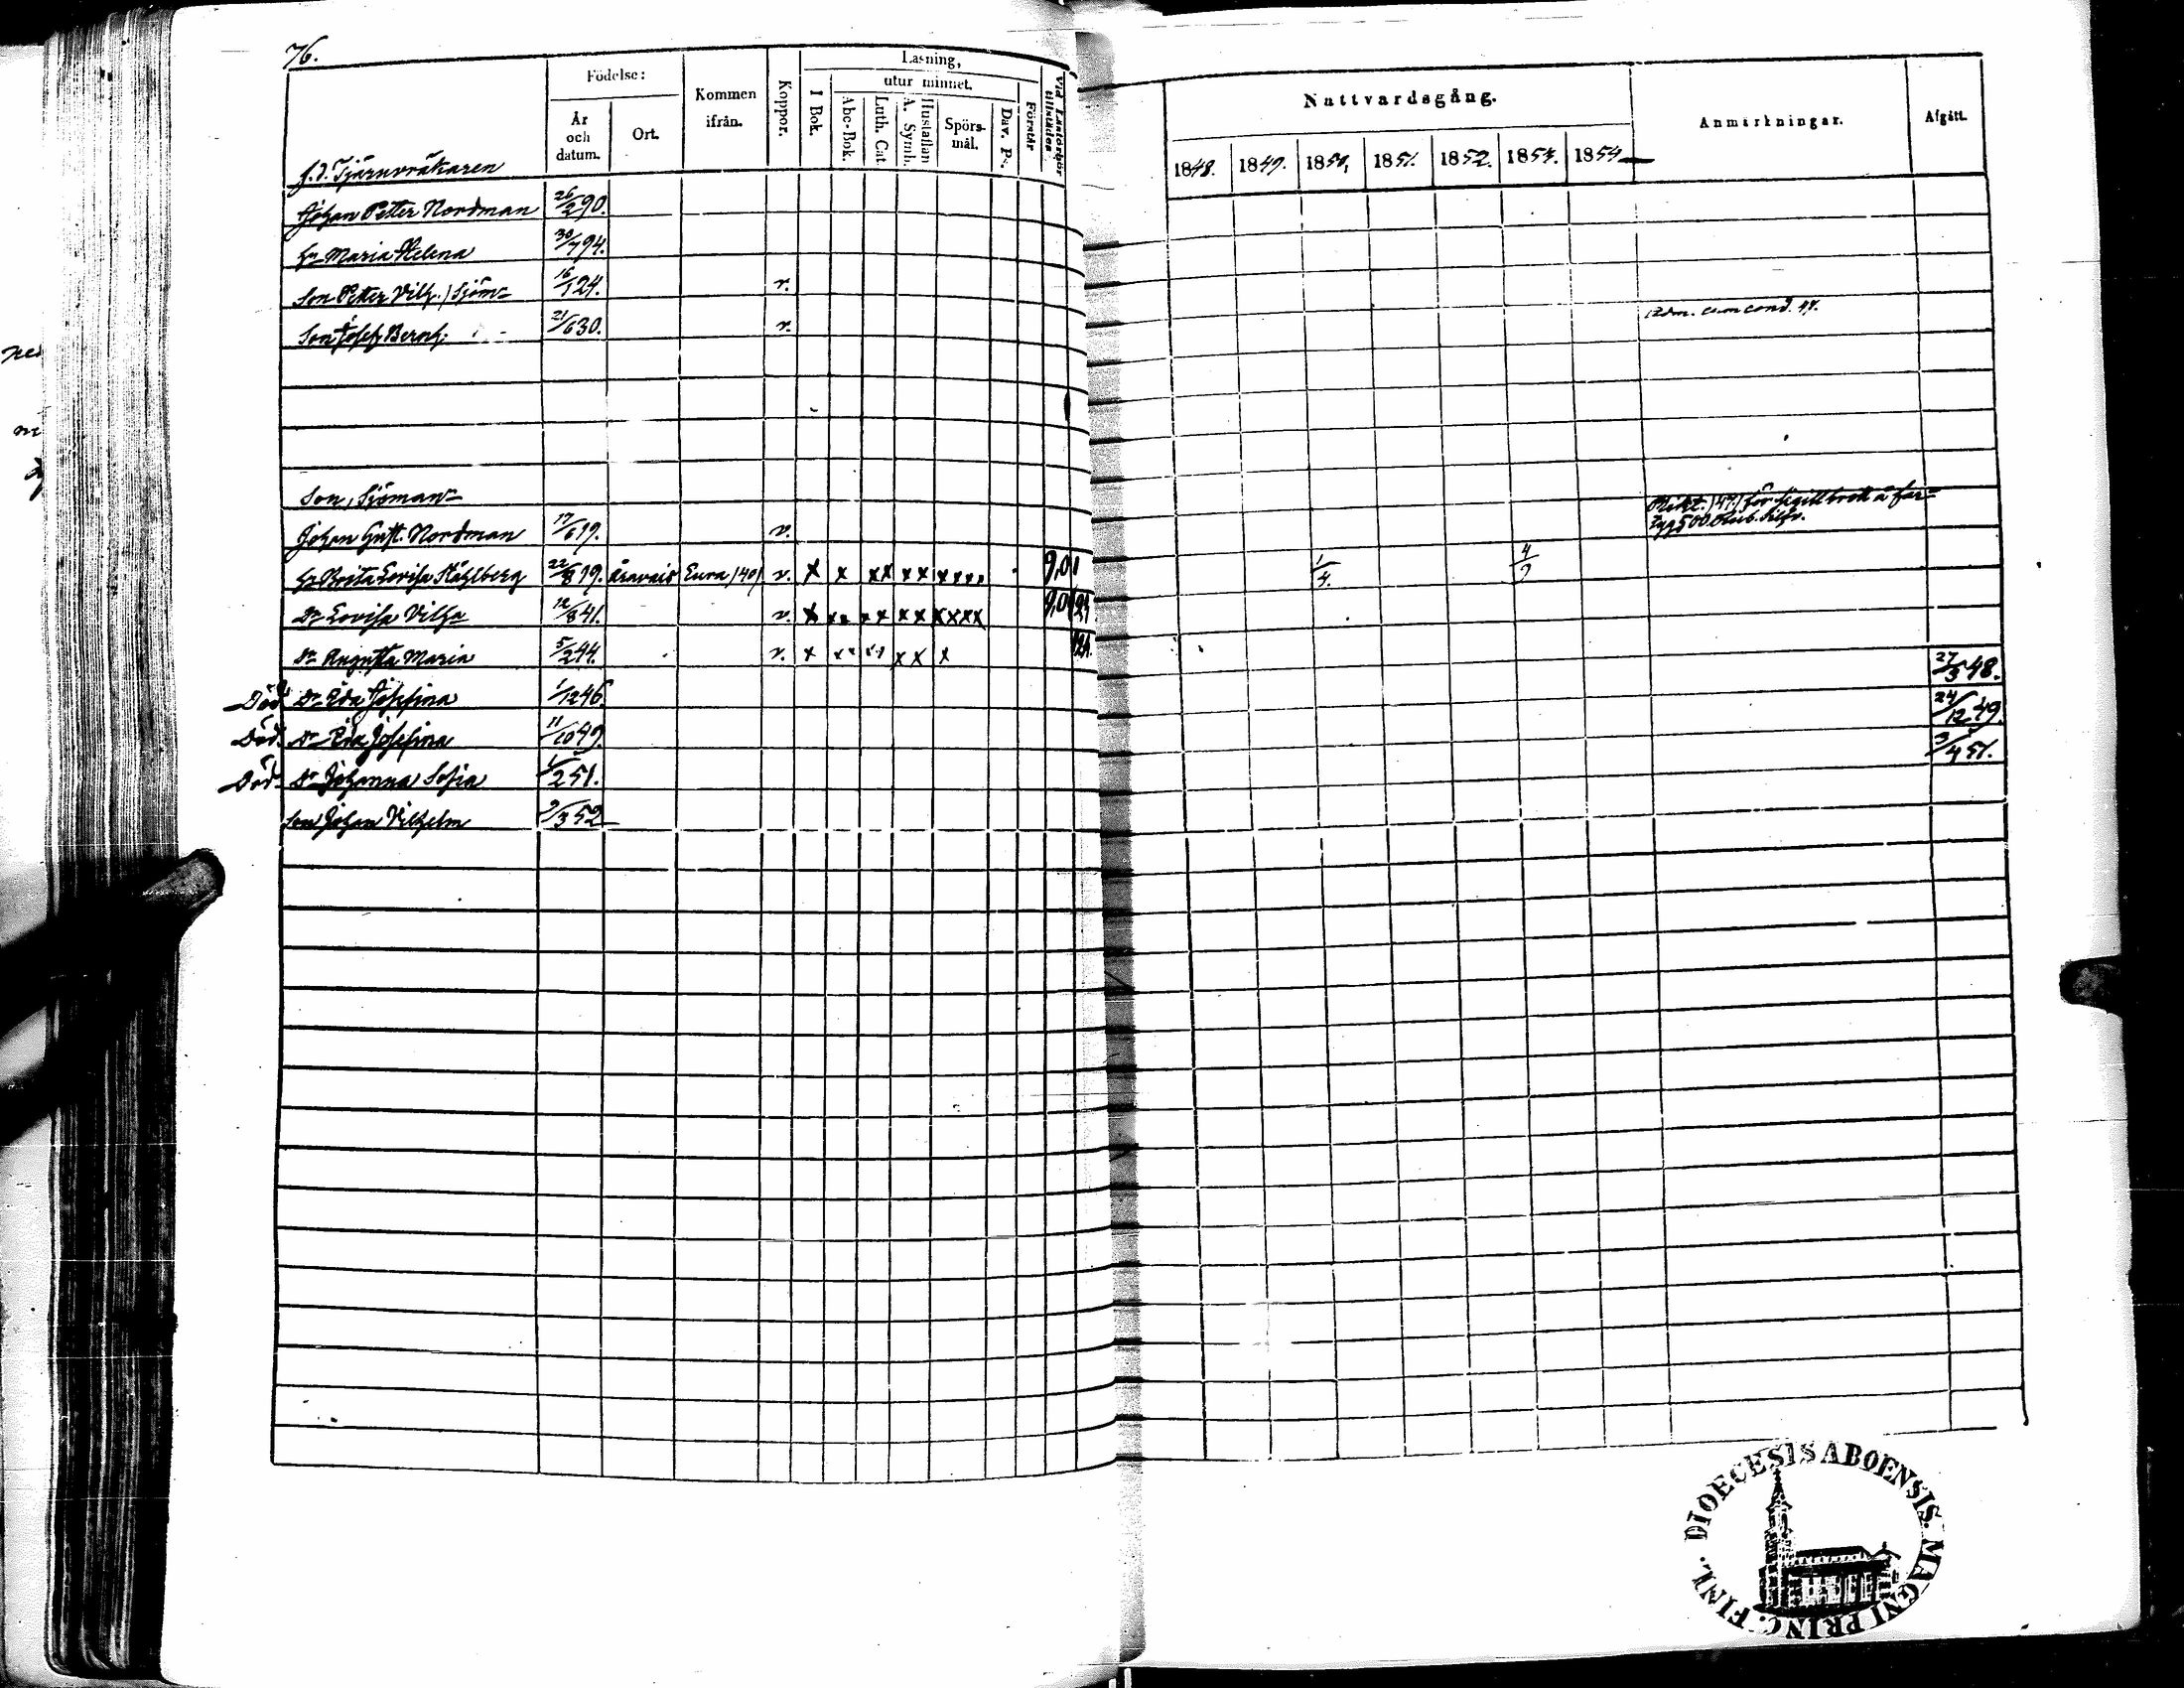 76.
Födelse: Kommen ifrån. Koppor. Läsning, Vid Läsförhör tillstädes
År och datum. Ort. I Bok. utur minnet. Förstår
Abc-Bok. Luth. Cat. A. Symb. Hustaflan Spörs-mål. Dav. Ps.
f.d. Tjäruvräkaren
Johan Petter Nordman 26/2 90.
Hu Maria Helena 30/7 94.
Son Petter Vilh. / Sjöm= 16/1 24. v.
Son Josef Bernh. 21/6 30. v.
Son, Sjöman=
Johan Gust. Nordman 17/6 19. v.
Hu Brita Lovisa Ståhlberg 22/8 19. Aravais Eura /40/ v. x x xx xx xxxx 9,0
Dr Lovisa Vilha 12/8 41. v. x xx xx xx xxxx
Dr Augusta Maria 5/2 44. v. x xx xx xx x
Död Dr Eda Josefina 1/12 46.
Död. Dr Eda Josefina 11/10 49.
Död. Dr Johanna Sofia 1/2 51.
Son Johan Vilhelm 9/3 52
Nattvardsgång. Anmärkningar. Afgått.
1848. 1849. 1850, 1851. 1852. 1853. 1854
Adm. cum cond. 47.
Plikt. /47/ för sigillbrott å far=
tyg 500 Rub. Silfv.
1/4. 4/9
27/3 48.
24/12 49.
3/4 51.
DIOECESIS ABOENSIS. MAGNI PRINC. FINL.